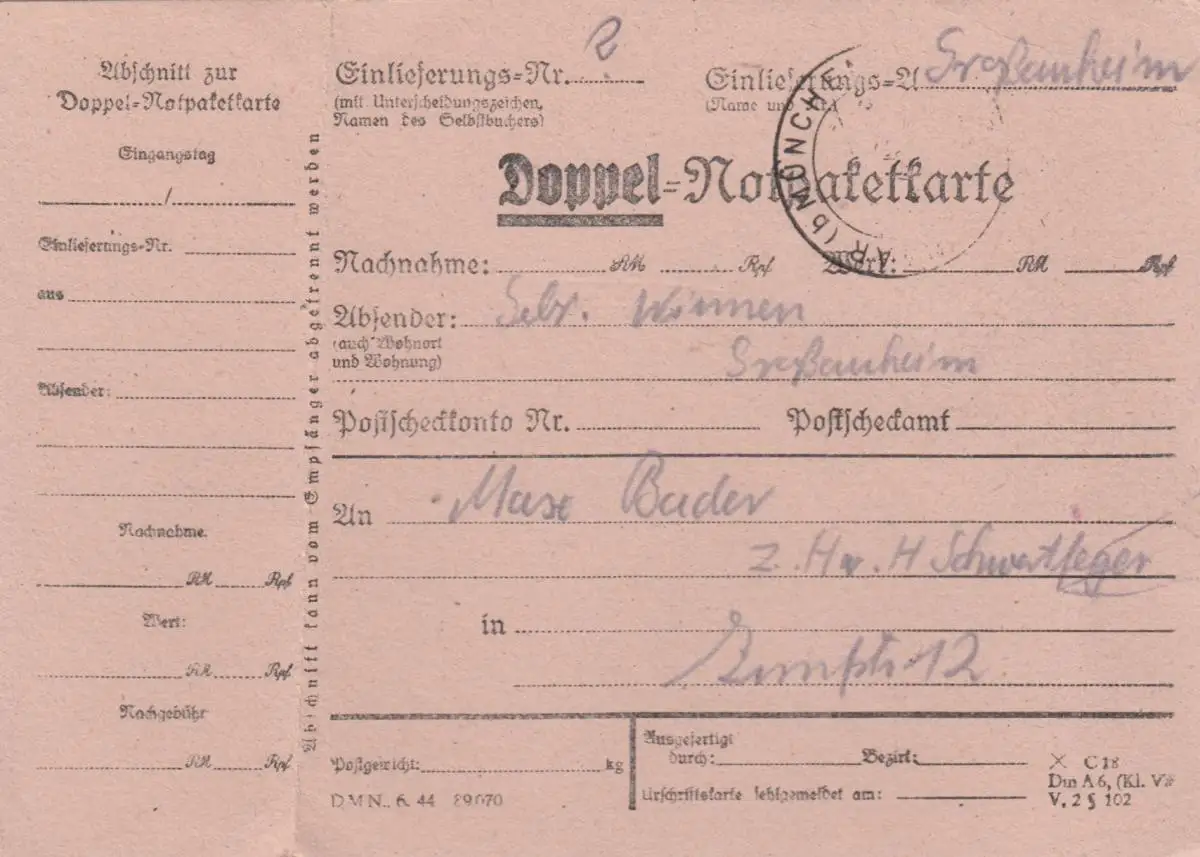 Abschnitt zur
Doppel-Notpaketkarte
Eingangstag
/
Einlieferungs-Nr.
aus
Absender:
Nachnahme
RM Rpf
Wert:
RM Rpf
Nachgebühr
RM Rpf
Abschnitt kann vom Empfänger abgetrennt werden
Einlieferungs-Nr. 2
(mit Unterscheidungszeichen,
Namen des Selbstbuchers)
Einlieferungs-A Großauheim
(Name und
MÜNCH
AR (b
Doppel-Notpaketkarte
Nachnahme: RM Rpf Wert: RM Rpf
Absender: Gebr. Winnen
(auch Wohnort
und Wohnung)
Großauheim
Postscheckkonto Nr. Postscheckamt
An Max Bader
z. H v. H Schwertfeger
in
12
Postgewicht: kg
DMN. 6. 44 89070
Ausgefertigt
durch: Bezirk:
Urschriftskarte fehlgemeldet am:
C 18
Din A6, (Kl.
V, 2 § 102